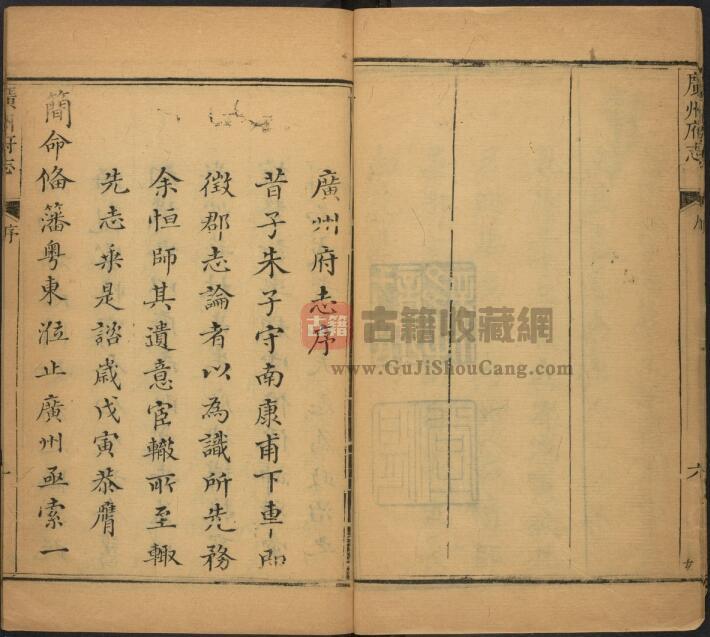 廣州府志
六
廣州府志序
昔子朱子守南康甫下車即
徵郡志論者以為識所先務
余恒師其遺意宦轍所至輒
先志乘是諮歲戊寅恭膺
簡命俻藩粵東涖止廣州亟索一
廣州府志
序
古籍
古籍收藏網
www.GuJiShouCang.com